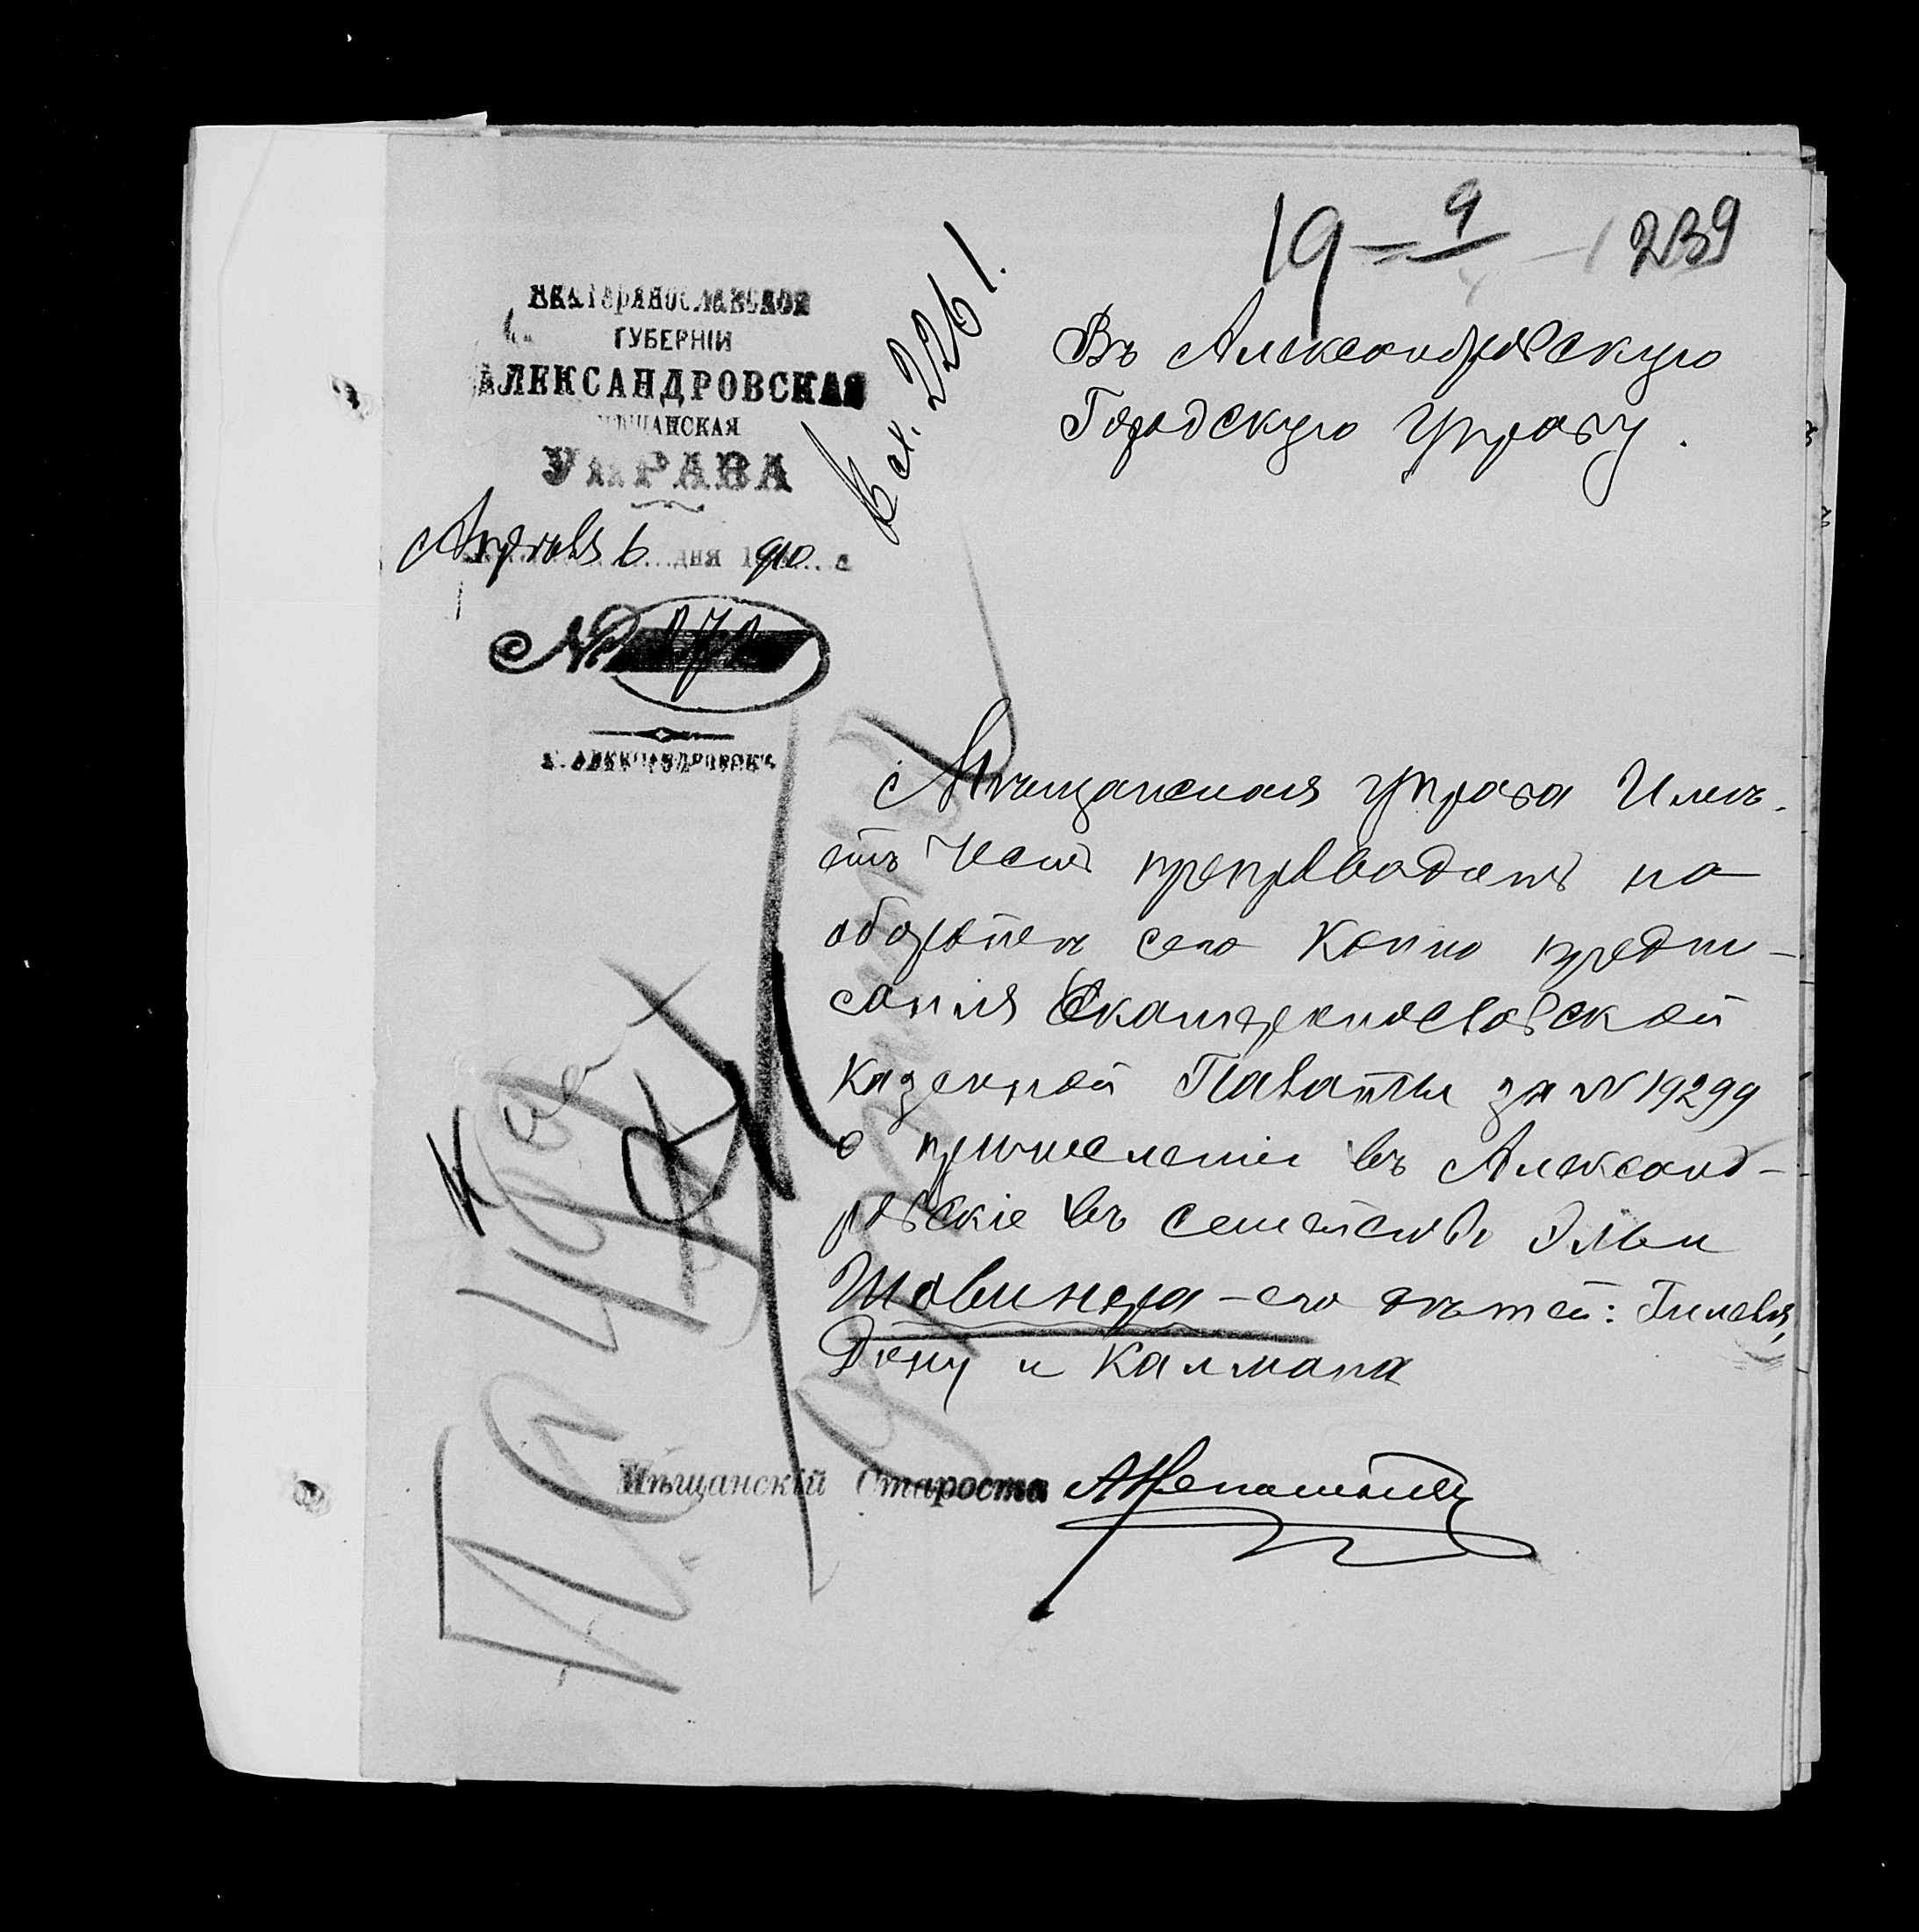 19 — 9/4 — 1
239
ЕКАТЕРИНОСЛАВСКОЙ
ГУБЕРНІИ
АЛЕКСАНДРОВСКАЯ
МѢЩАНСКАЯ
УПРАВА
Апрѣля 6 дня 1910 г
№
г. АЛЕКСАНДРОВСКЪ
Вх. 2261.
Въ Александровскую
Городскую Управу.
Мѣщанская управа Имѣ-
етъ Честь препроводить на
оборотѣ сего Копію предпи-
санія Екатеринославской
Казенной Палаты за № 19299
о причисленіи въ Александ-
ровскіе въ семейство Эльи
Шавинера – его дѣтей:
Дину и Калмана
Мѣщанскій Староста